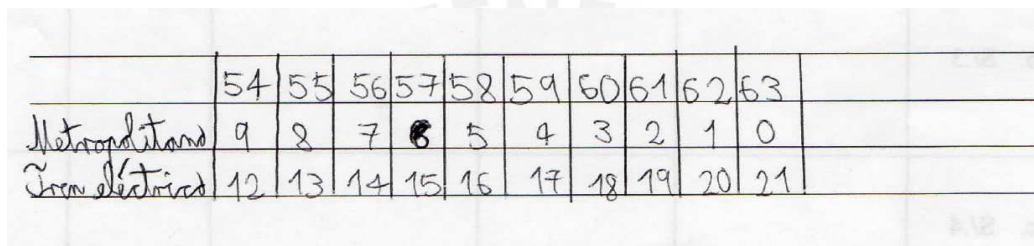 54 55 56 57 58 59 60 61 62 63
Metropolitano 9 8 7 6 5 4 3 2 1 0
Tren eléctrico 12 13 14 15 16 17 18 19 20 21